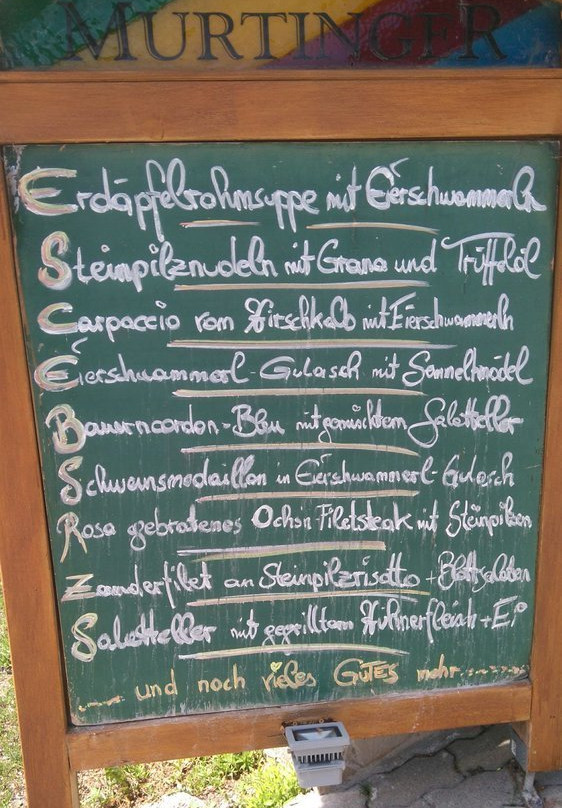 MURTINGER
Erdäpfelrahmsuppe mit Eierschwammerln
Steinpilznudeln mit Grana und Trüffelöl
Carpaccio vom Hirschkalb mit Eierschwammerln
Eierschwammerl-Gulasch mit Semmelknödel
Bauerncordon-Bleu mit gemischtem Salatteller
Schweinsmedaillon in Eierschwammerl-Gulasch
Rosa gebratenes Ochsn Filetsteak mit Steinpilzen
Zanderfilet an Steinpilzrisotto + Blattsalaten
Salatteller mit gegrilltem Hühnerfleisch + Ei
und noch vieles GUTES mehr